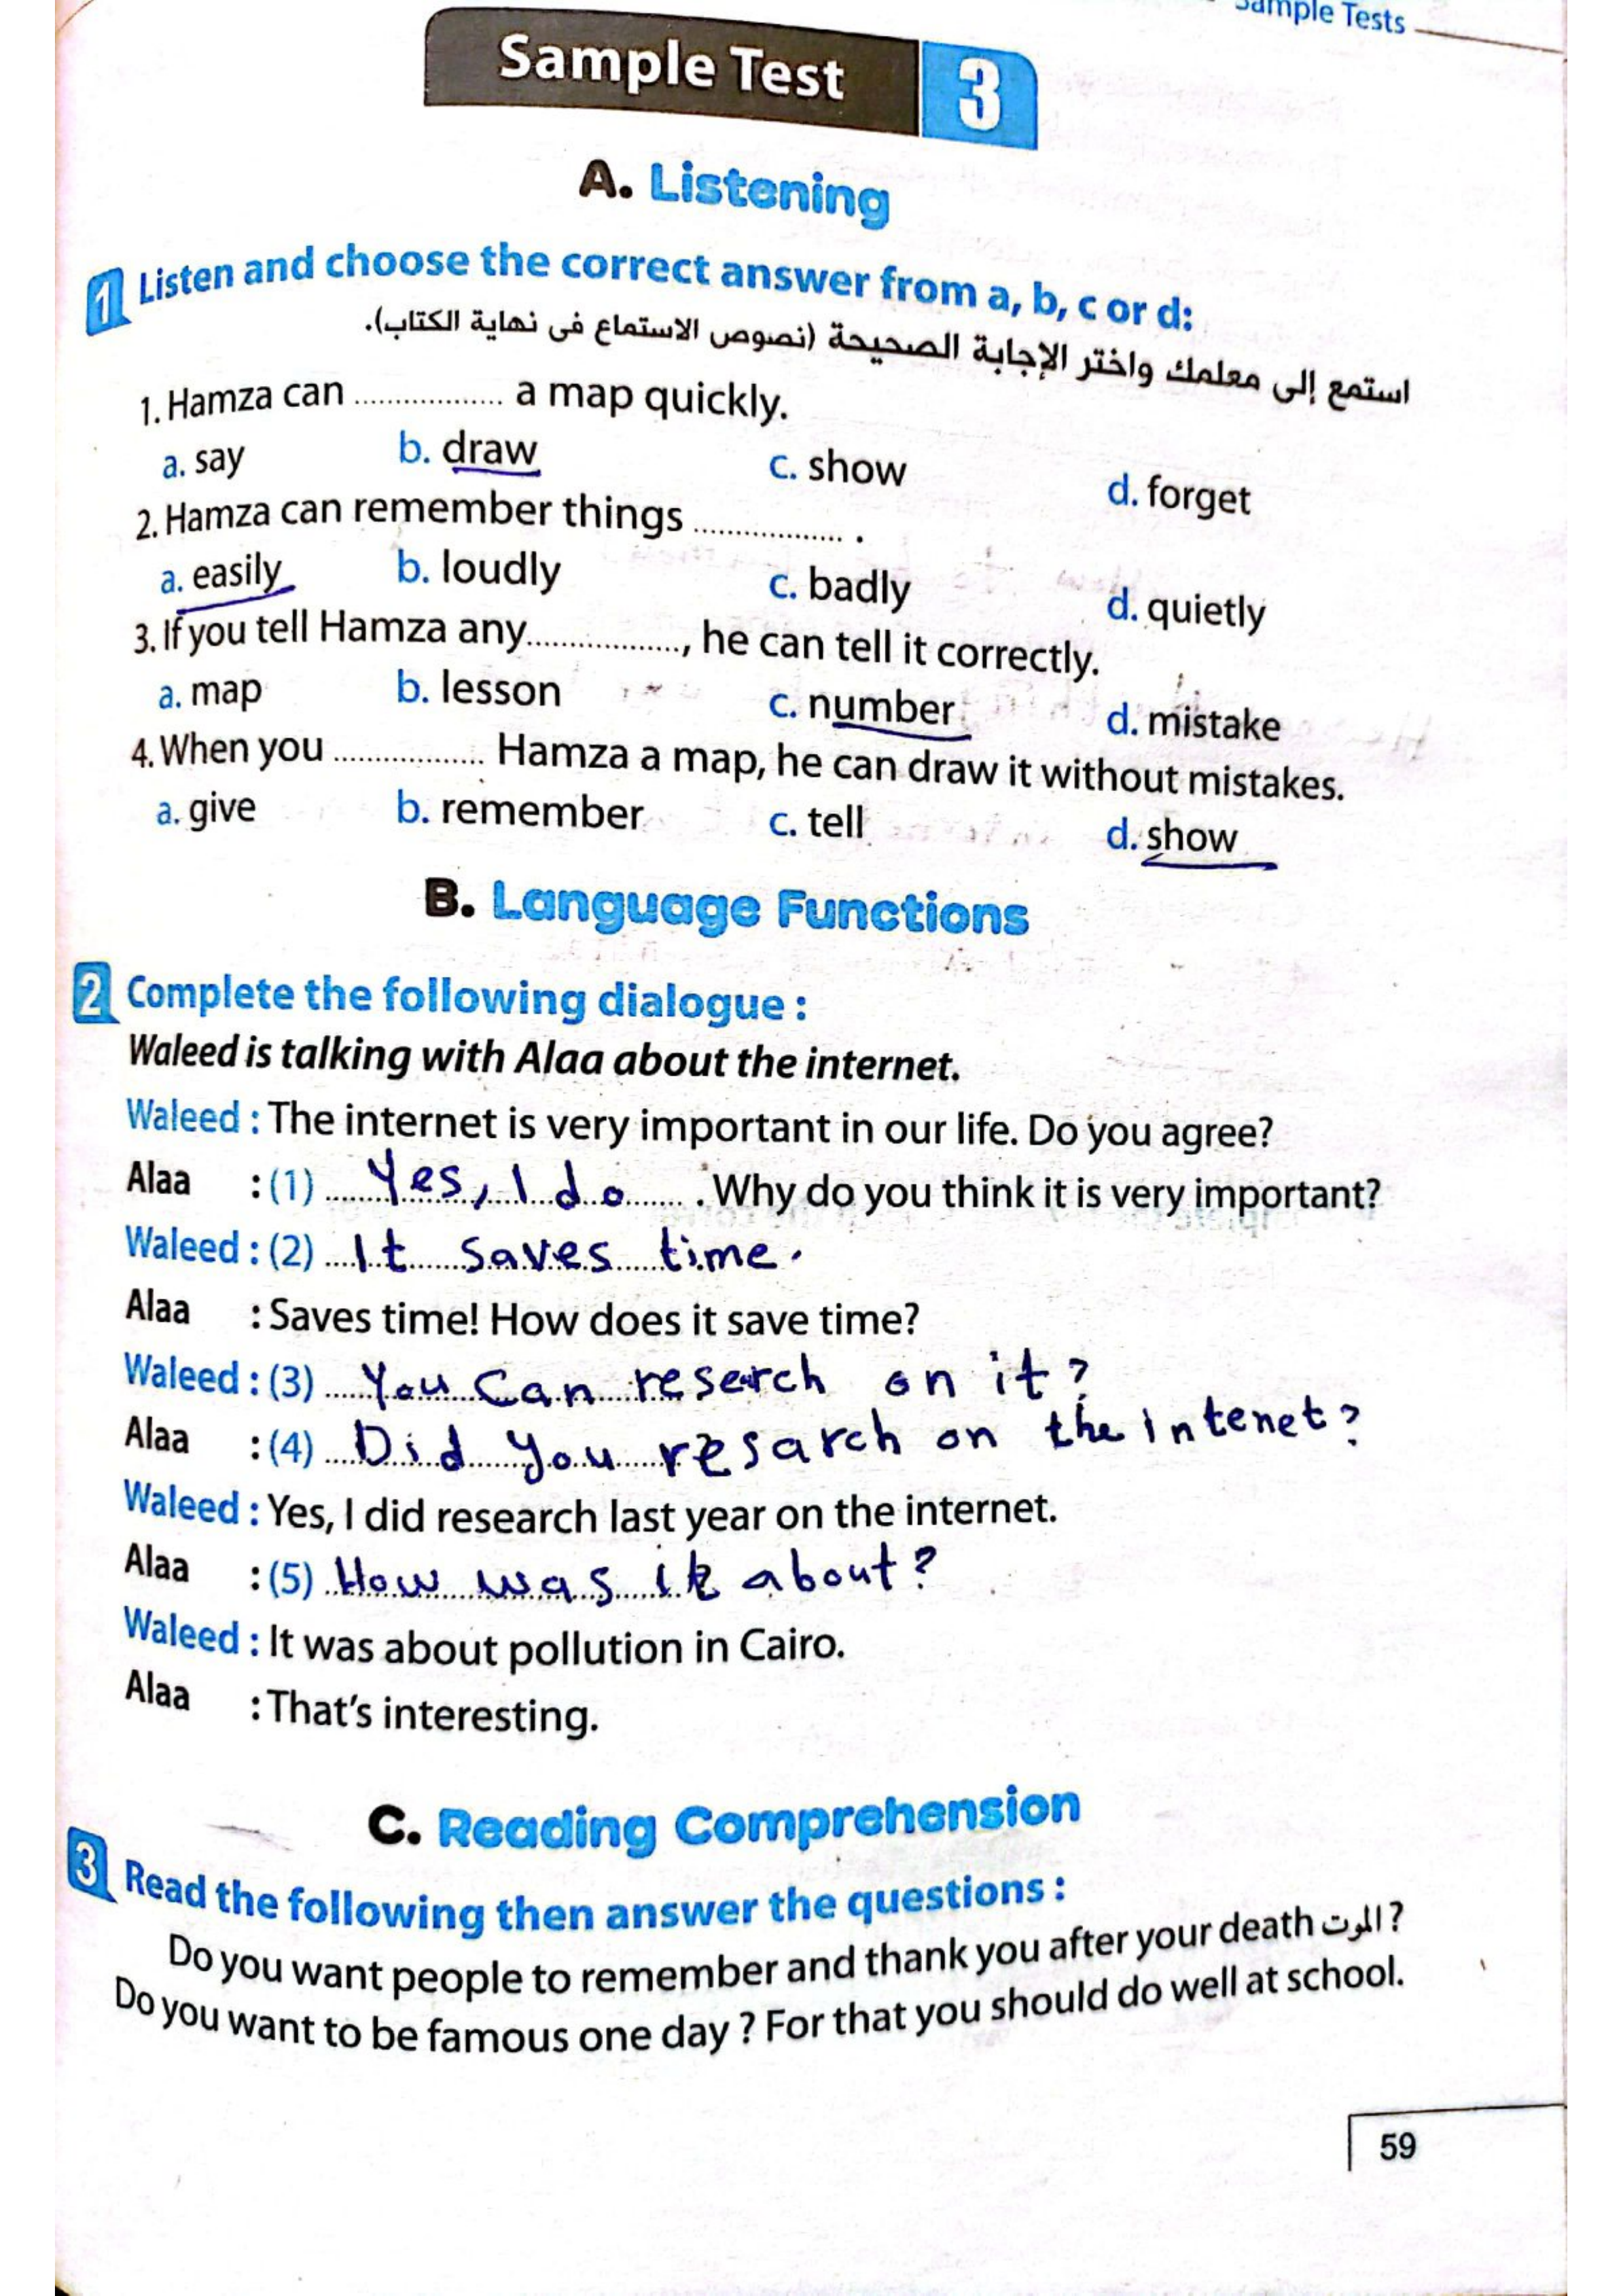 Sample Tests
Sample Test 3
A. Listening
1 Listen and choose the correct answer from a, b, c or d:
استمع إلى معلمك واختر الإجابة الصحيحة (نصوص الاستماع فى نهاية الكتاب).
1. Hamza can ................. a map quickly.
a. say b. draw c. show d. forget
2. Hamza can remember things ................. .
a. easily b. loudly c. badly d. quietly
3. If you tell Hamza any................., he can tell it correctly.
a. map b. lesson c. number d. mistake
4. When you ................. Hamza a map, he can draw it without mistakes.
a. give b. remember c. tell d. show
B. Language Functions
2 Complete the following dialogue :
Waleed is talking with Alaa about the internet.
Waleed : The internet is very important in our life. Do you agree?
Alaa : (1) Yes, I do . Why do you think it is very important?
Waleed : (2) It saves time.
Alaa : Saves time! How does it save time?
Waleed : (3) You Can reserch on it?
Alaa : (4) Did you resarch on the intenet?
Waleed : Yes, I did research last year on the internet.
Alaa : (5) How was it about?
Waleed : It was about pollution in Cairo.
Alaa : That's interesting.
C. Reading Comprehension
3 Read the following then answer the questions :
Do you want people to remember and thank you after your death الموت ?
Do you want to be famous one day ? For that you should do well at school.
59